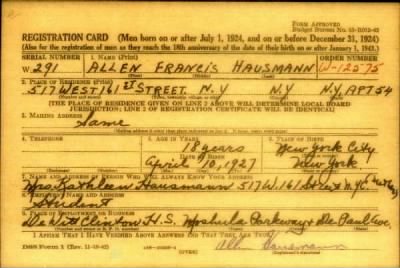 FORM APPROVED
Budget Bureau No. 33-R012-42
REGISTRATION CARD (Men born on or after July 1, 1924, and on or before December 31, 1924)
(Also for the registration of men as they reach the 18th anniversary of the date of their birth on or after January 1, 1943.)
SERIAL NUMBER 1. NAME (Print) ORDER NUMBER
W 291 ALLEN FRANCIS HAUSMANN W-12575
(First) (Middle) (Last)
2. PLACE OF RESIDENCE (Print)
517 WEST 161 ST STREET. N.Y N.Y N.Y, APT 54
[THE PLACE OF RESIDENCE GIVEN ON LINE 2 ABOVE WILL DETERMINE LOCAL BOARD
JURISDICTION; LINE 2 OF REGISTRATION CERTIFICATE WILL BE IDENTICAL]
3. MAILING ADDRESS
Same
4. TELEPHONE 5. AGE IN YEARS 6. PLACE OF BIRTH
18 years New York City
DATE OF BIRTH
April 10, 1927 New York
7. NAME AND ADDRESS OF PERSON WHO WILL ALWAYS KNOW YOUR ADDRESS
Mrs. Kathleen Hausmann 517 W. 161 St
8. EMPLOYER'S NAME AND ADDRESS
Student
9. PLACE OF EMPLOYMENT OR BUSINESS
De Witt Clinton H.S. Moshulu Parkway + De Paul Ave.
I AFFIRM THAT I HAVE VERIFIED ABOVE ANSWERS AND THAT THEY ARE TRUE.
DSS Form 1 (Rev. 11-16-42) (OVER) Allen Hausmann